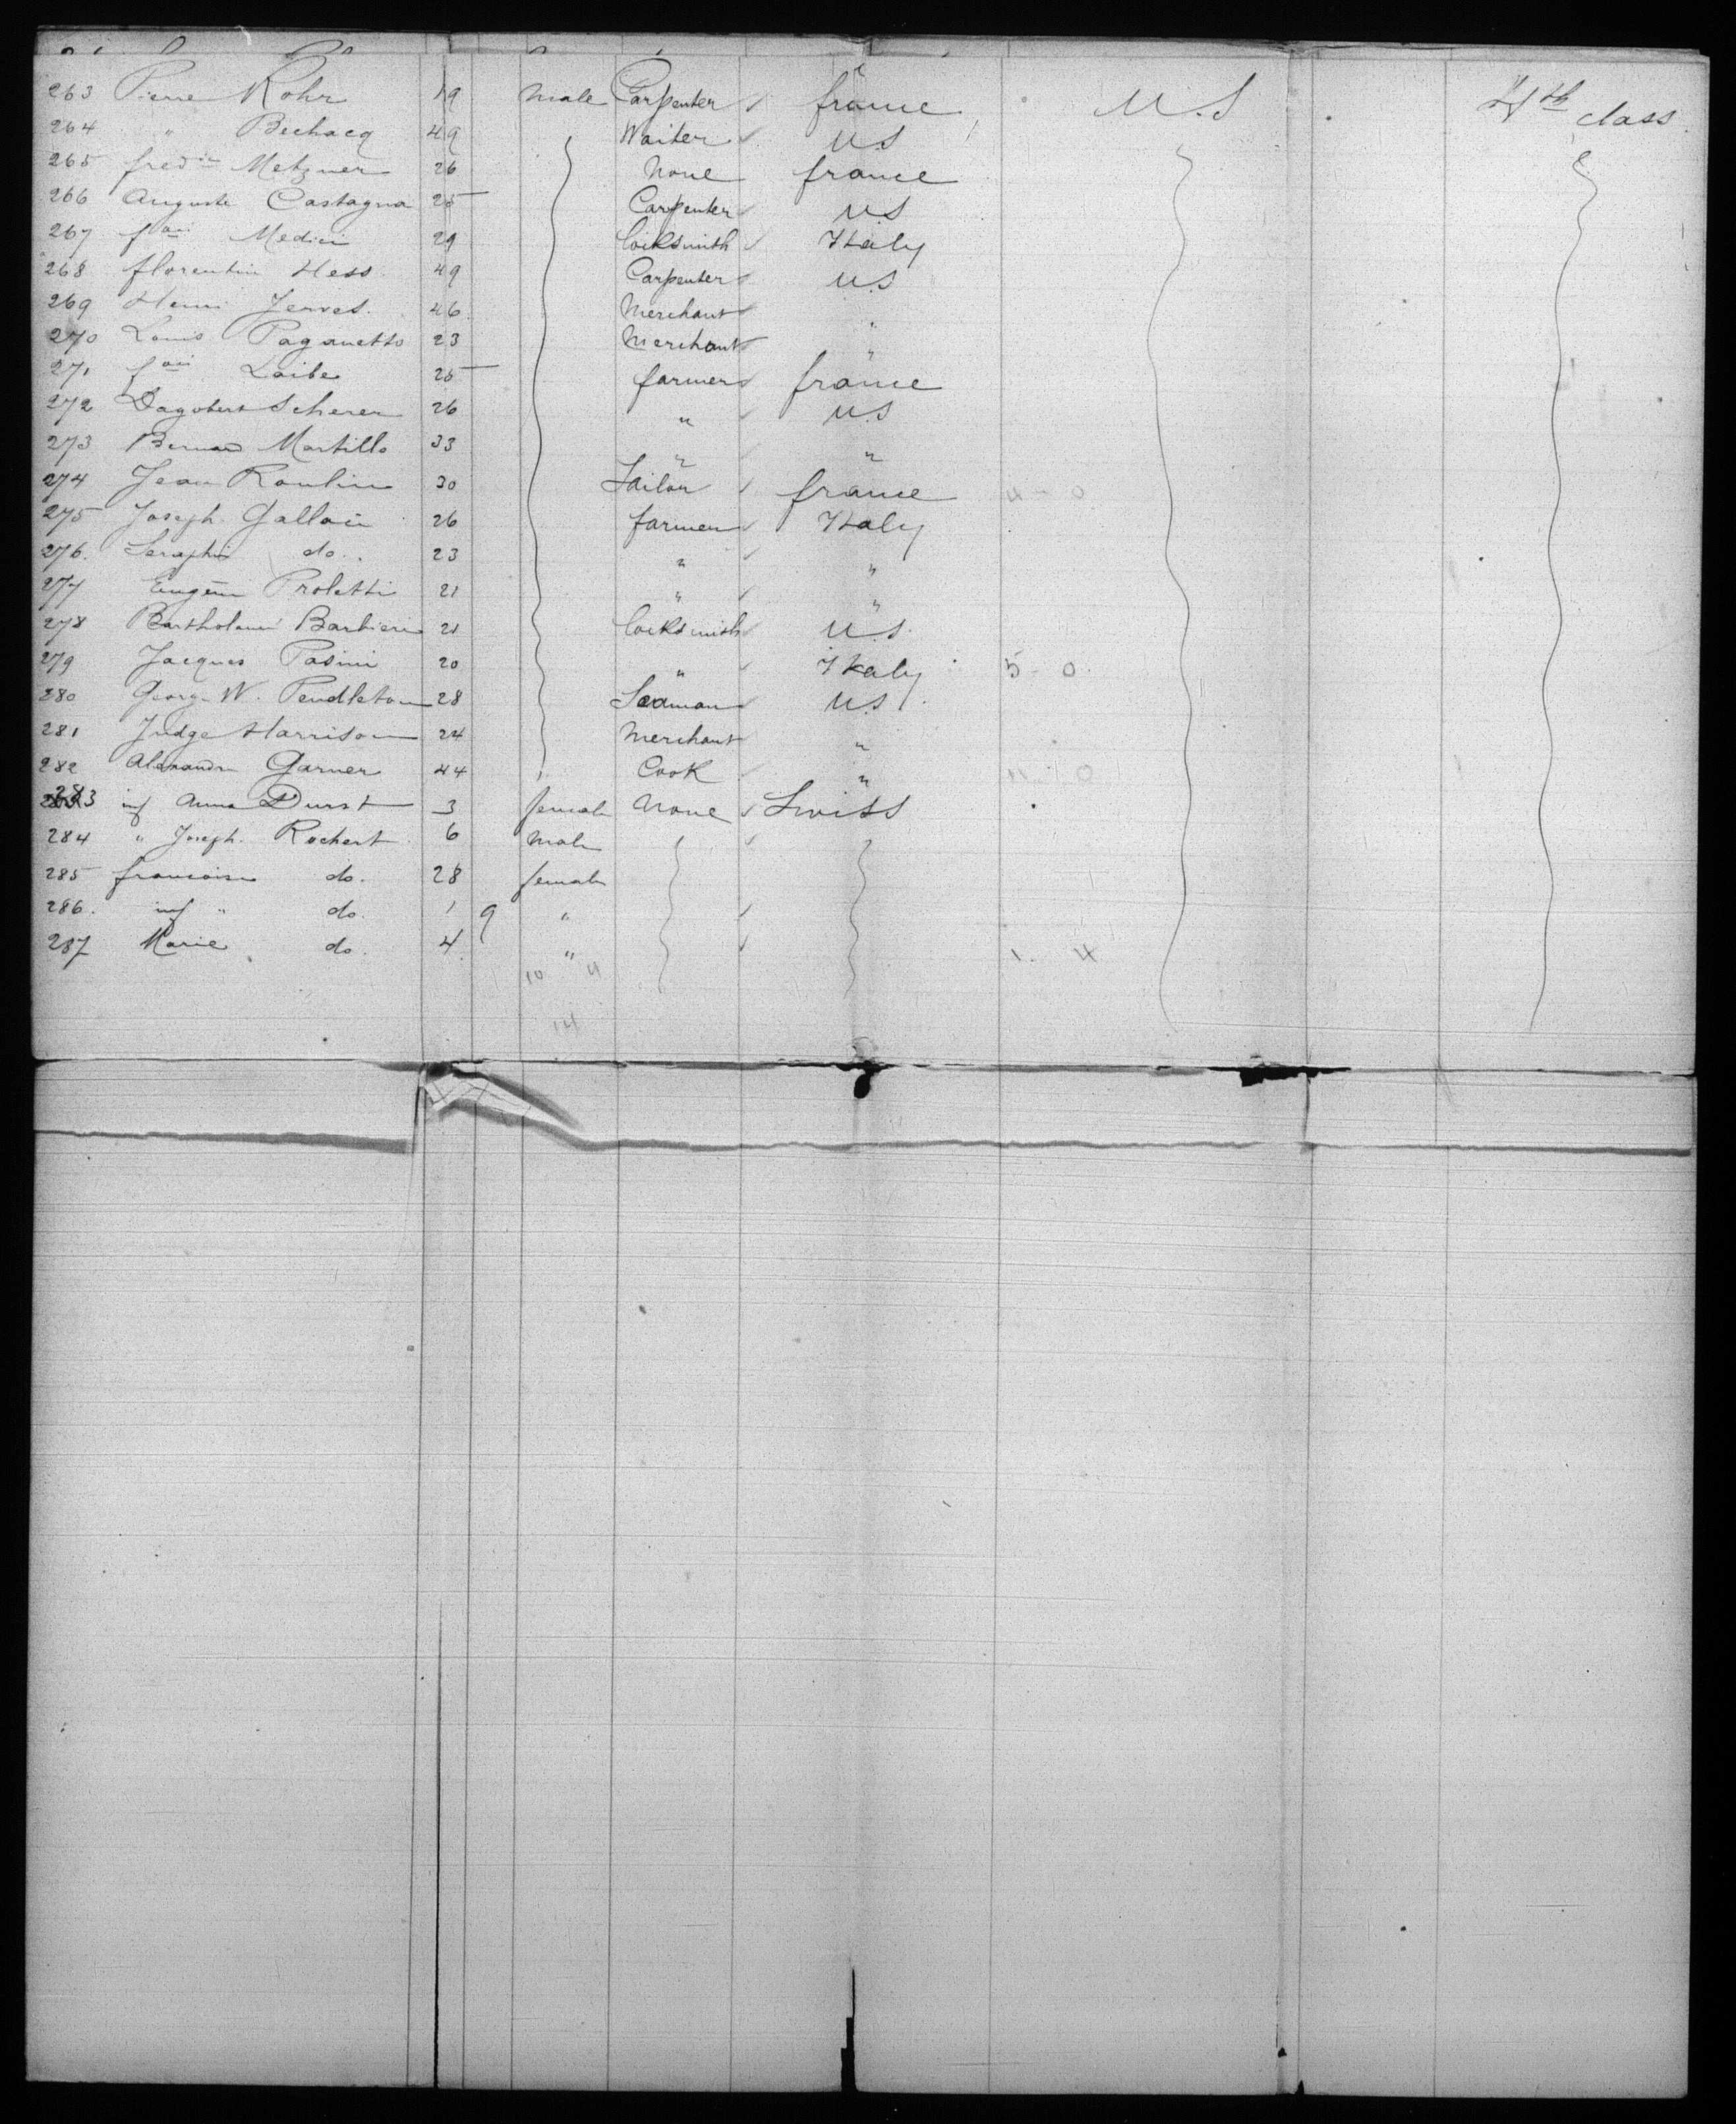 263 Pierre Rohr 19 male Carpenter france U.S 4th class
264 " Bechacq 49 Waiter U.S
265 fred Metzner 26 None france
266 Auguste Castagna 25 Carpenter U.S
267 fois Medici 29 Locksmith Italy
268 florentin Hess 49 Carpenter U.S
269 Henri Jerves. 46. Merchant "
270 Louis Paganetto 23 Merchant "
271 fois Laibe 25 farmer france
272 Dagobert Scherer 26 " U.S
273 Bernard Martillo 33 " "
274 Jean Roulin 30 Tailor france 4 - 0
275 Joseph Galloni 26 farmer Italy
276. Seraphi do. 23 " "
277 Eugeni Proletti 21 " "
278 Bartholomi Barbieri 21 Locksmith U.S.
279 Jacques Pasini 20 " Italy 5 - 0
280 Georg. W. Pendleton 28 Seaman U.S.
281 Judge Harrison 24 Merchant "
282 Alexandre Garner 44 Cook " 11 - 0
283 inf Anna Durst 3 female None Swiss
284 " Joseph Rochert 6 male
285 francoise do. 28 female
286. inf " do. 1 9 "
287 Marie do. 4. " 1. 4
10 4
14